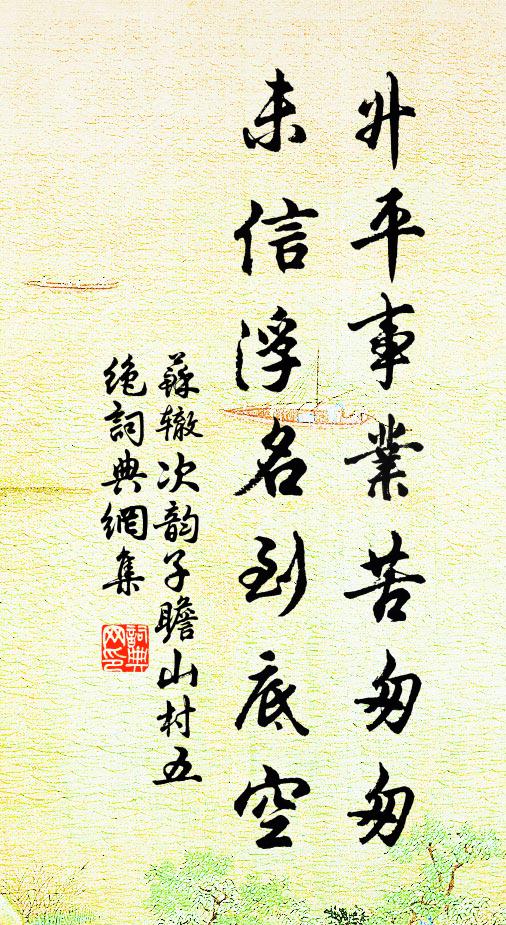 升平事業苦匆匆
未信浮名到底空
蘇轍次韵子瞻山村五
绝詞典網集
詞典
网印